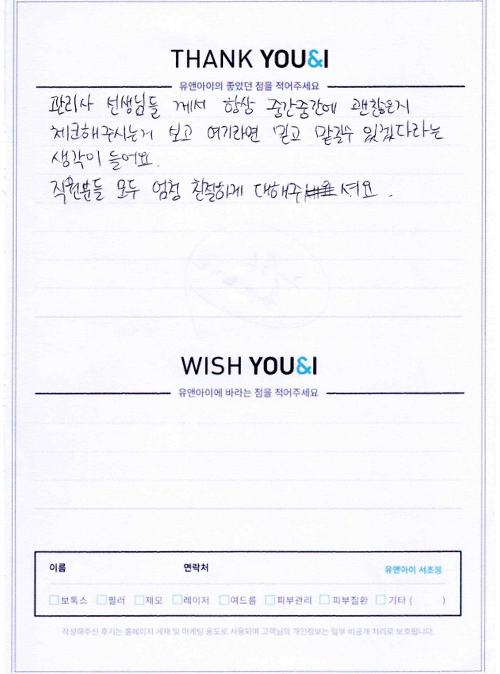 THANK YOU&I
유앤아이의 좋았던 점을 적어주세요
관리사 선생님들 께서 항상 중간중간에 괜찮은지
체크해주시는거 보고 여기라면 믿고 맡길수 있겠다라는
생각이 들어요.
직원분들 모두 엄청 친절하게 대해주셔요.
WISH YOU&I
유앤아이에 바라는 점을 적어주세요
이름 연락처 유앤아이 서초점
보톡스 필러 제모 레이저 여드름 피부관리 피부질환 기타 ( )
작성해주신 후기는 홈페이지 게재 및 마케팅 용도로 사용되며 고객님의 개인정보는 일부 비공개 처리로 보호됩니다.